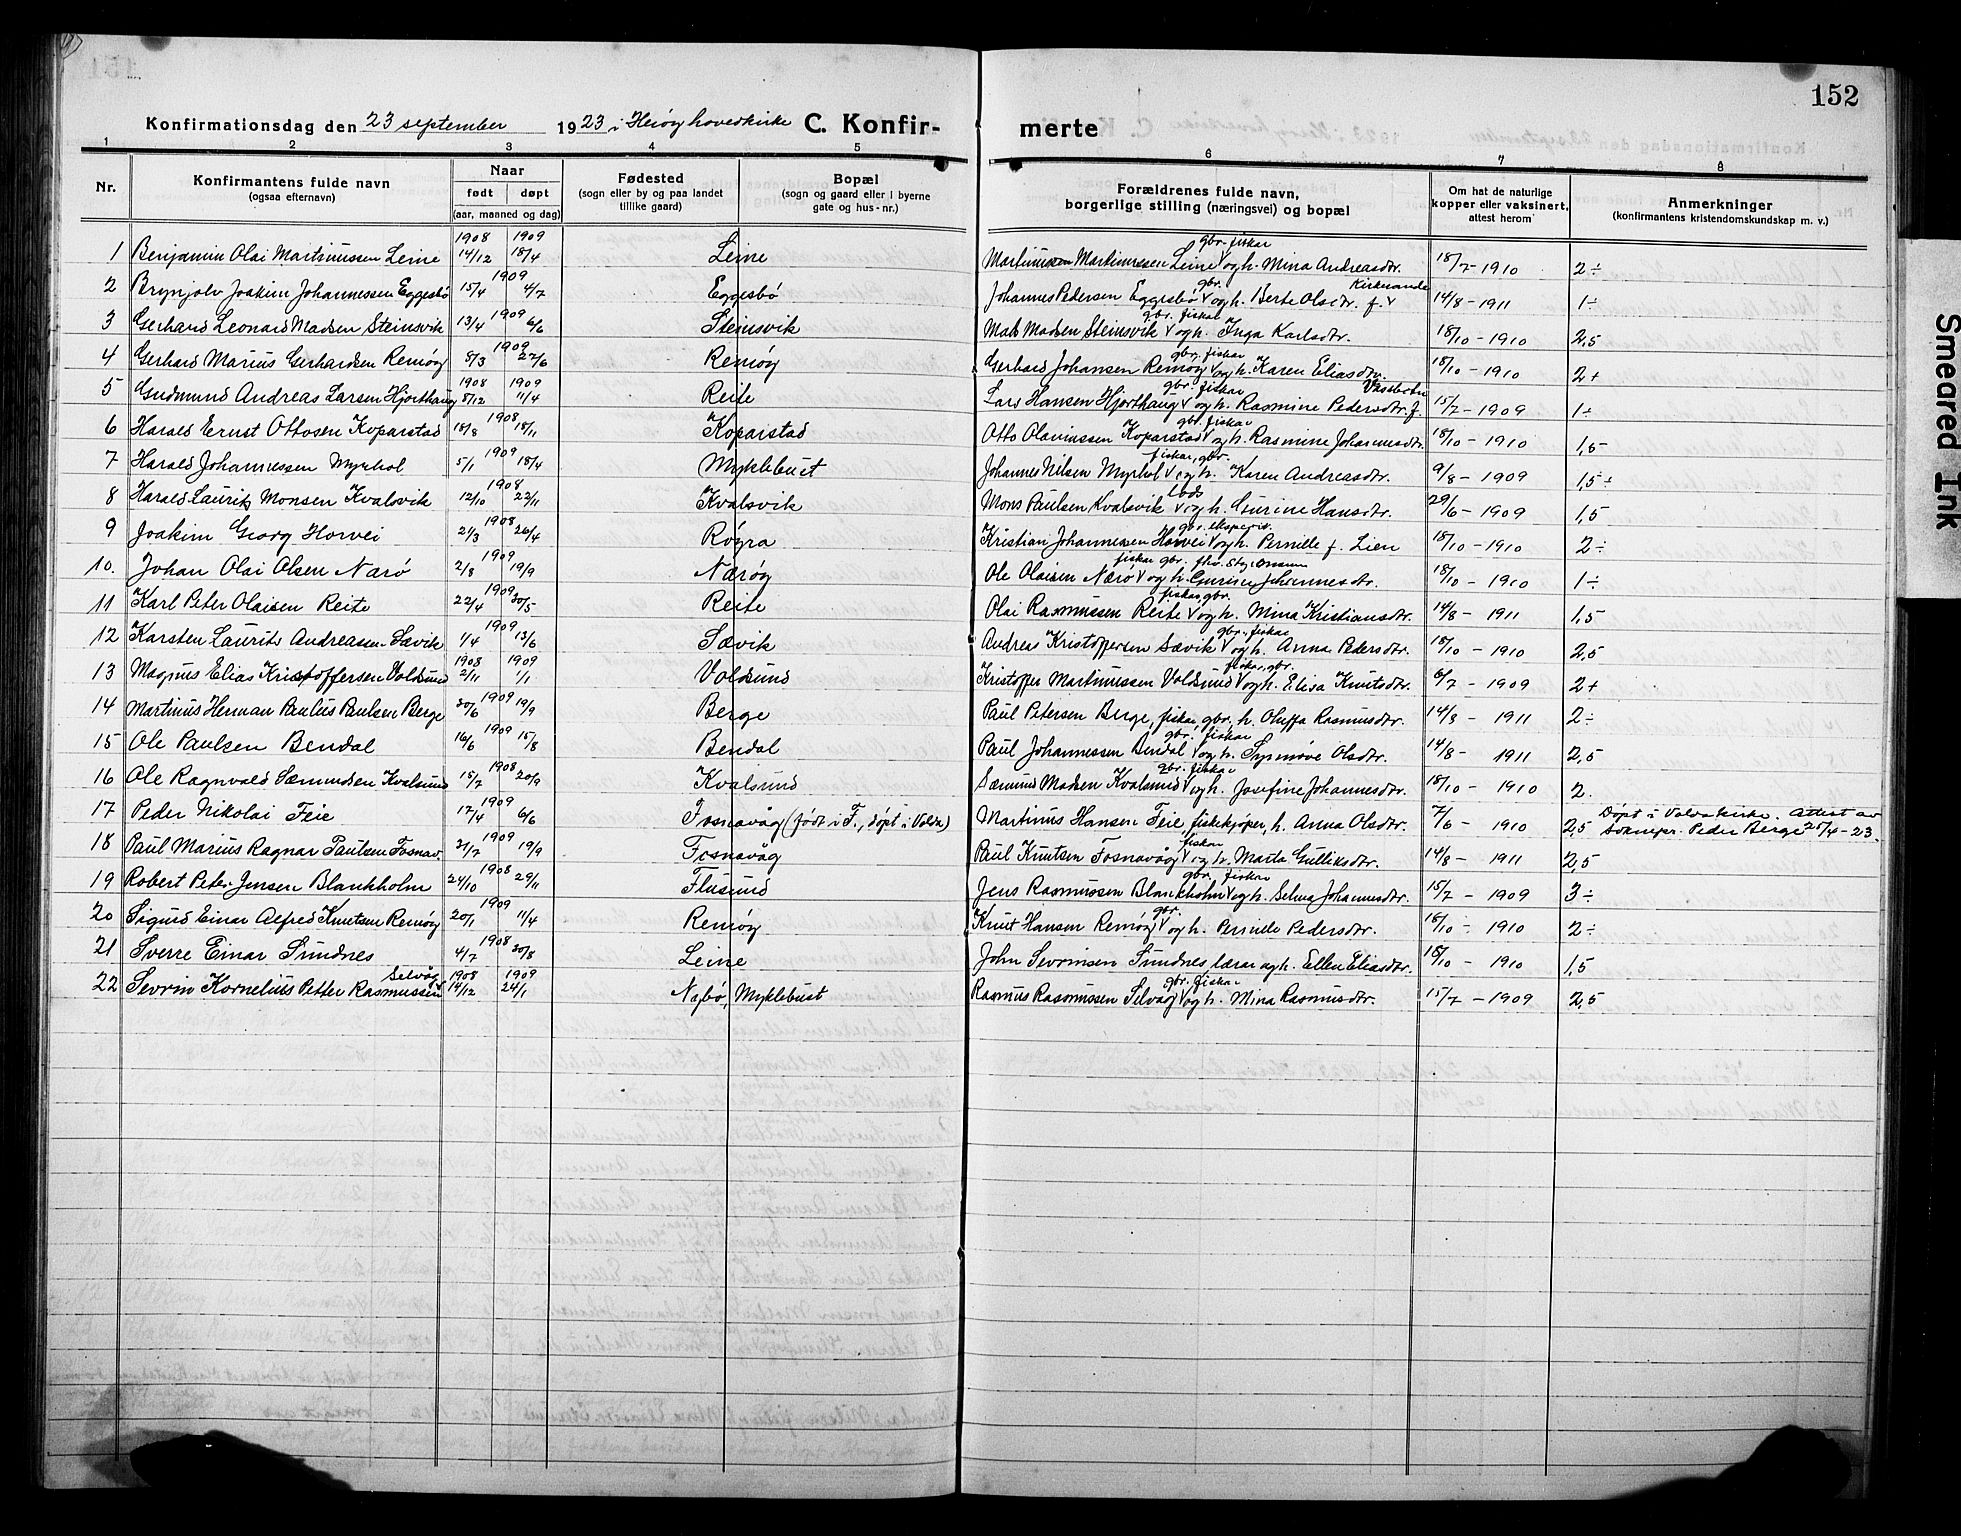 152
Konfirmationsdag den 23 september 1923 i Herøy hovedkirke C. Konfir-
merte
1 2 3 4 5 6 7 8
Nr. Konfirmantens fulde navn (ogsaa efternavn) Naar født døpt (aar, maaned og dag) Fødested (sogn eller by og paa landet tillike gaard) Bopæl (sogn og gaard eller i byerne gate og hus-nr.) Forældrenes fulde navn, borgerlige stilling (næringsvei) og bopæl Om hat de naturlige kopper eller vaksinert, attest herom Anmerkninger (konfirmantens kristendomskundskap m. v.)
1 Benjamin Olai Martinussen Leine 1908 14/12 1909 18/4 Leine Martinussen Martinussen Leine v gbr. fiskar og h. Mina Andreasdtr. 18/7 - 1910 2÷
2 Brynjolv Joakim Johannessen Eggesbø 15/4 1909 4/7 Eggesbø Johannes Pedersen Eggesbø v gbr. og h. Berte Olsdtr. f. v Kirknande 14/8 - 1911 1÷
3 Gerhard Leonard Madsen Steinsvik 13/4 1909 6/6 Steinsvik Mats Madsen Steinsvik v gbr. fiskar og h. Inga Karlsdtr. 18/10 - 1910 2,5
4 Gerhard Marius Gerhardsen Remøy 8/3 1909 27/6 Remøy Gerhard Johansen Remøy v gbr. fiskar og h. Karen Eliasdtr. 18/10 - 1910 2+
5 Gudmund Andreas Larsen Hjorthaug 1908 8/12 1909 11/4 Reite Lars Hansen Hjorthaug v gbr. fiskar og h. Rasmine Pedersdtr. f. Vassbotn 15/7 - 1909 1÷
6 Harald Ernst Ottosen Koparstad 18/8 1908 18/11 Koparstad Otto Olavinssen Koparstad v gbr. fiskar og h. Rasmine Johannesdtr. 18/10 - 1910 1,5
7 Harald Johannessen Myrhol 5/1 1909 18/4 Myklebust Johannes Nilsen Myrhol v fiskar, gbr. og h. Karen Andreasdtr. 9/8 - 1909 1,5÷
8 Harald Laurits Monsen Kvalsvik 12/10 1908 22/11 Kvalsvik Mons Paulsen Kvalsvik v lods og h. Gurine Hansdtr. 29/6 - 1909 1,5
9 Joakim Georg Horvei 21/3 1908 26/4 Røyra Kristian Johannessen Horvei v gbr. ekspeditr. og h. Pernille f. Lien 18/10 - 1910 2÷
10. Johan Olai Olsen Nærø 2/8 1909 19/9 Nærøy Ole Olaisen Nærø v fiskar gbr. og h. Gurine Johannesdtr. 18/10 - 1910 1÷
11 Karl Peter Olaisen Reite 22/4 1909 30/5 Reite Olai Rasmussen Reite v fiskar, gbr. og h. Mina Kristiansdtr. 14/8 - 1911 1,5
12 Karsten Laurits Andreassen Sævik 1/4 1909 13/6 Sævik Andreas Kristoffersen Sævik v gbr. fiskar og h. Anna Pedersdtr. 18/10 - 1910 2,5
13 Magnus Elias Kristoffersen Voldsund 1908 2/11 1909 1/1 Voldsund Kristoffer Martinussen Voldsund v fiskar, gbr. og h. Elisa Knutsdtr. 6/7 - 1909 2+
14 Martinus Herman Paulus Paulsen Berge 30/6 1909 19/9 Berge Paul Petersen Berge, fiskar, gbr, h. Oluffa Rasmusdtr. 14/8 - 1911 2÷
15 Ole Paulsen Bendal 16/6 1909 15/8 Bendal Paul Johannessen Bendal v gbr. fiskar og h. Synnøve Olsdtr. 14/8 - 1911 2,5
16 Ole Ragnvald Sæmundsen Kvalsund 15/7 1908 20/9 Kvalsund Sæmund Madsen Kvalsund v gbr. fiskar og h. Josefine Johannesdtr. 18/10 - 1910 2.
17 Peder Nikolai Feie 17/4 1909 6/6 Fosnavåg (født i F., døpt i Volda) Martinus Hansen Feie, fiskekjøper, h. Anna Olsdtr. 7/6 - 1910 2,5 Døpt i Volda kirke. Attest av soknepr. Peder Berge 25/4-23.
18 Paul Marius Ragnar Paulsen Fosnav. 21/7 1909 19/9 Fosnavåg Paul Knutsen Fosnavåg v fiskar og h. Marta Gulliksdtr. 14/8 - 1911 2,5
19 Robert Peter Jensen Blankholm 24/10 1908 29/11 Flusund Jens Rasmussen Blankholm v gbr. fiskar og h. Selma Johannesdtr. 15/7 - 1909 3÷
20 Sigurd Einar Alfred Knutsen Remøy 20/1 1909 11/4 Remøy Knut Hansen Remøy v gbr. og h. Pernille Pedersdtr. 18/10 - 1910 2÷
21 Sverre Einar Sundnes 4/7 1908 30/8 Leine John Sevrinsen Sundnes, lærar og h. Ellen Eliasdtr. 18/10 - 1910 1,5
22 Sevrin Kornelius Petter Rasmussen Selvåg 1908 14/12 1909 24/1 Nøbø, Myklebust Rasmus Rasmussen Selvåg v gbr. fiskar og h. Mina Rasmusdtr. 15/7 - 1909 2,5
Smeared Ink